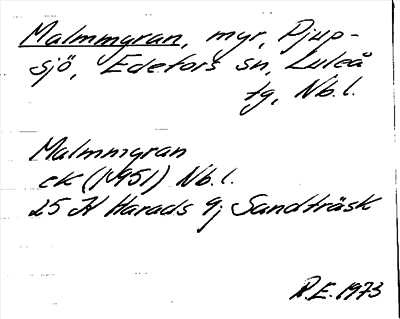 Malmmyran, myr, Djup-
sjö, Edefors sn, Luleå
tg, Nb.l.
Malmmyran
ek (1951) Nb.l.
25 K Harads 9j Sandträsk
R.E. 1973